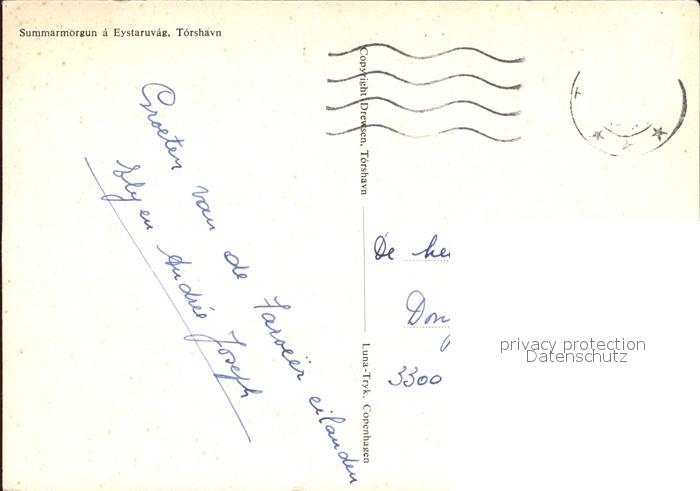 Summarmorgun á Eystaruvág, Tórshavn
Groeten van de Faroëer eilanden
Elly en Andrée Joseph
Copyright Drewsen, Tórshavn
Luna-Tryk, Copenhagen
De
3300
privacy protection
Datenschutz